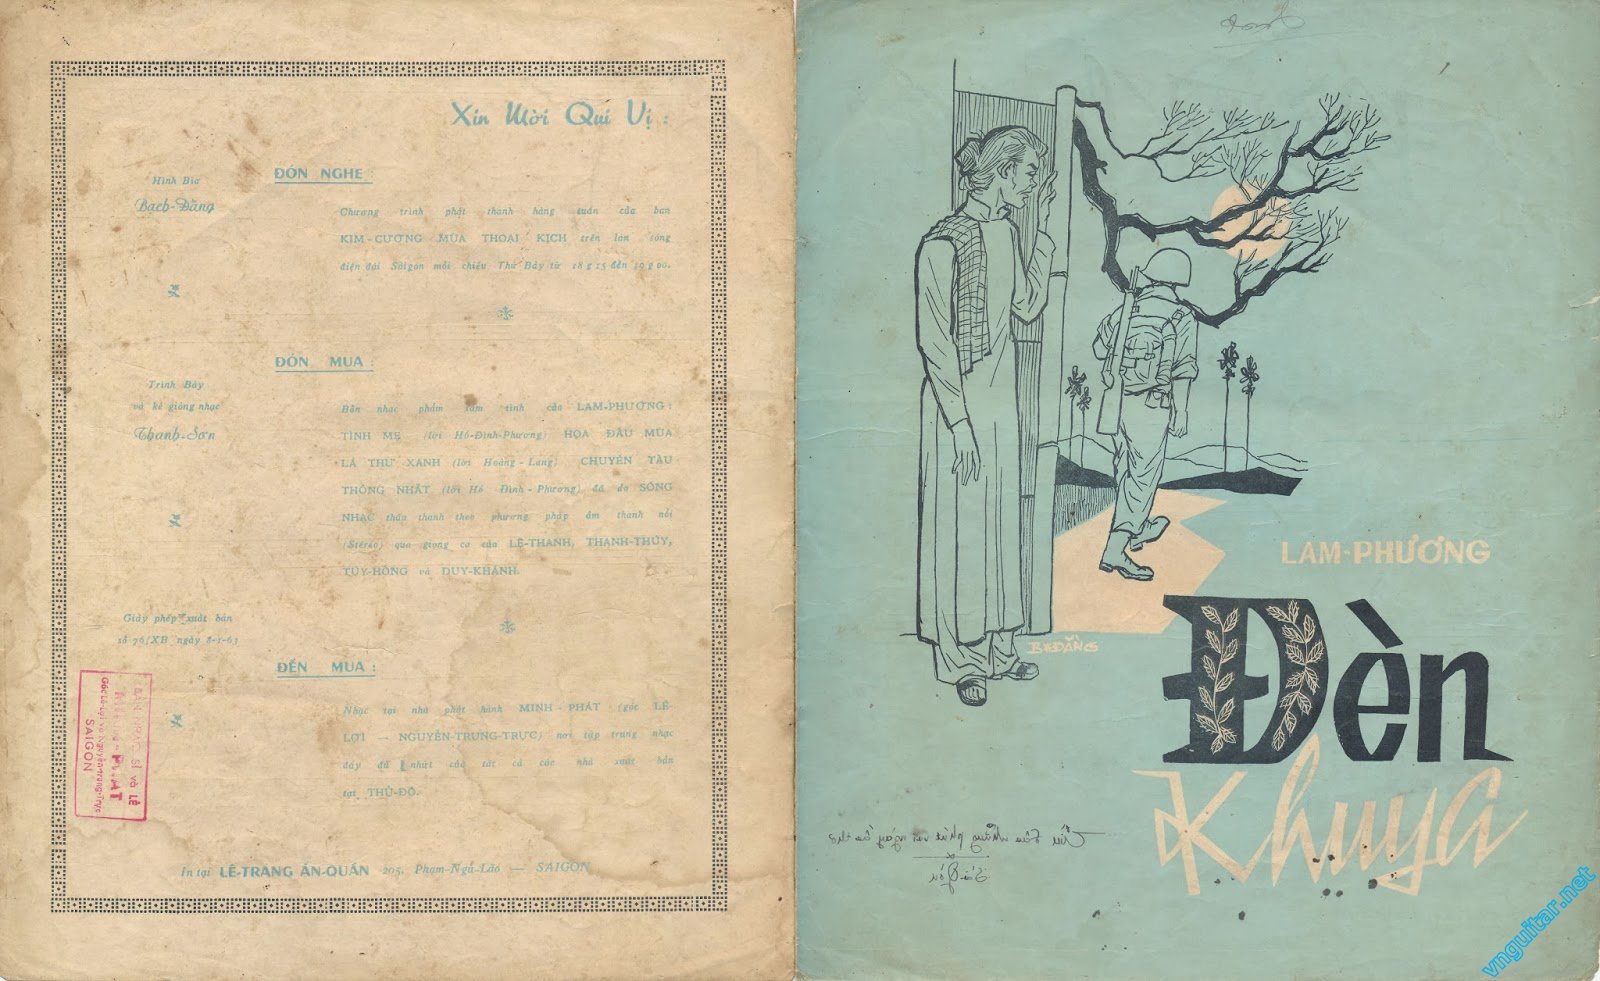 Xin Mời Quí Vị :
Hình Bìa
Bạch-Đằng
ĐÓN NGHE :
Chương trình phát thanh hàng tuần của ban
KIM-CƯƠNG MÙA THOẠI KỊCH trên làn sóng
điện đài Sàigòn mỗi chiều Thứ Bảy từ 18 g 15 đến 19 g 00.
ĐÓN MUA :
Trình Bày
và kẻ giòng nhạc
Thanh-Sơn
Bản nhạc phẩm tâm tình của LAM-PHƯƠNG :
TÌNH MẸ (lời Hồ-Đình-Phương) HOA ĐẦU MÙA
LÁ THƯ XANH (lời Hoàng-Lang) CHUYẾN TÀU
THỐNG NHẤT (lời Hồ Đình-Phương) đã do SÓNG
NHẠC thâu thanh theo phương pháp âm thanh nổi
(Stéréo) qua giọng ca của LỆ-THANH, THANH-THÚY,
TÚY-HỒNG và DUY-KHÁNH.
Giấy phép xuất bản
số 76/XB ngày 8-1-63
ĐẾN MUA :
Nhạc tại nhà phát hành MINH-PHÁT (góc LÊ-
LỢI — NGUYỄN-TRUNG-TRỰC) nơi tập trung nhạc
đầy đủ nhứt của tất cả các nhà xuất bản
tại THỦ-ĐÔ.
In tại LÊ-TRANG ẤN-QUÁN 205, Phạm-Ngũ-Lão — SAIGON
SAIGON
LAM-PHƯƠNG
Đèn
Khuya
B.ĐẰNG
vnguitar.net